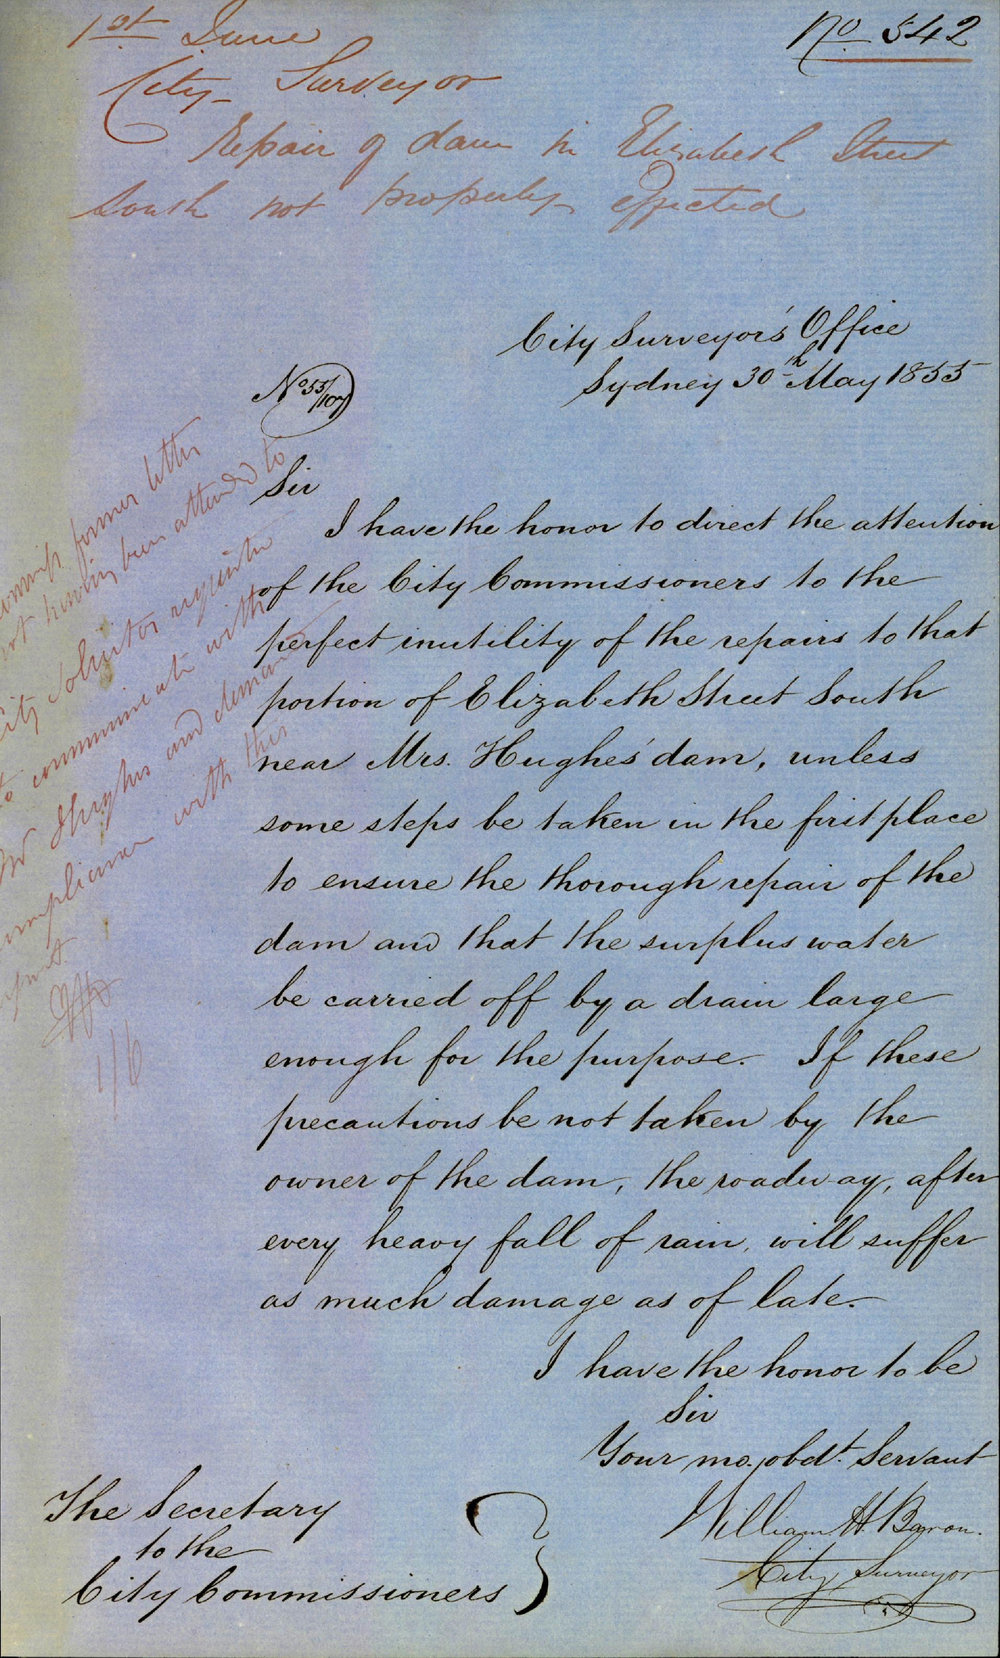 1st June
No 542
City Surveyor
Repair of dam in Elizabeth Street
South not properly effected
City Surveyor's Office
Sydney 30th May 1855
No 55/107
Sir
I have the honor to direct the attention
of the City Commissioners to the
perfect inutility of the repairs to that
portion of Elizabeth Street South
near Mrs. Hughes' dam, unless
some steps be taken in the first place
to ensure the thorough repair of the
dam and that the surplus water
be carried off by a drain large
enough for the purpose. If these
precautions be not taken by the
owner of the dam, the roadway, after
every heavy fall of rain, will suffer
as much damage as of late.
I have the honor to be
Sir
Your mo. obdt. Servant
William H. Baron.
City Surveyor
The Secretary
to the
City Commissioners
former letter
not having been attended to
City Solicitor
to communicate with
Hughes and demand
compliance with this
1/6